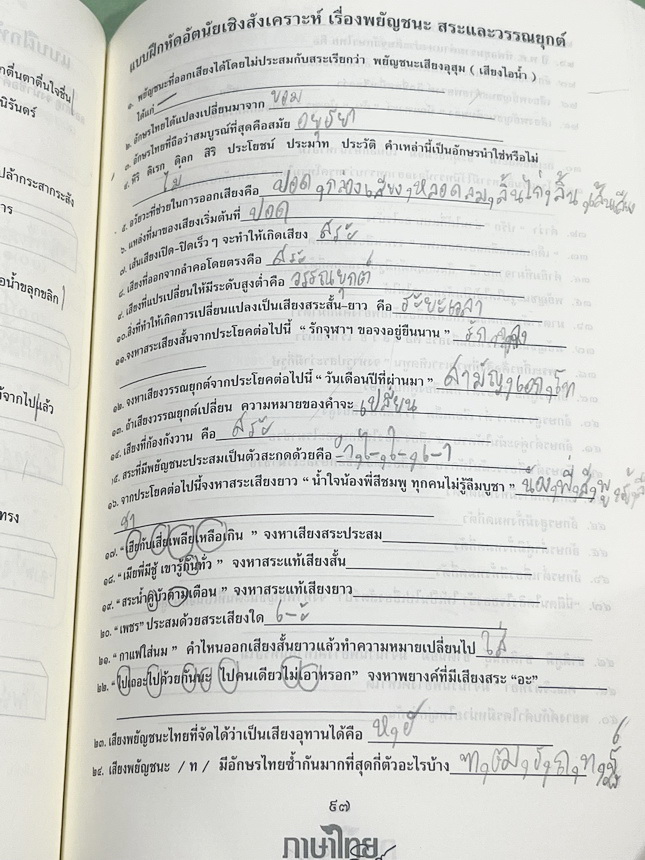 แบบฝึกหัดอัตนัยเชิงสังเคราะห์ เรื่องพยัญชนะ สระและวรรณยุกต์
๑. พยัญชนะที่ออกเสียงได้โดยไม่ประสมกับสระเรียกว่า พยัญชนะเสียงอุสุม ( เสียงไอน้ำ )
ได้แก่
๒. อักษรไทยได้แปลงเปลี่ยนมาจาก ขอม
๓. อักษรไทยที่ถือว่าสมบูรณ์ที่สุดคือสมัย อยุธยา
๔. ศิริ ดิเรก ดิลก สิริ ประโยชน์ ประมาท ประวัติ คำเหล่านี้เป็นอักษรนำใช่หรือไม่
ไม่
๕. อวัยวะที่ช่วยในการออกเสียงคือ ปอด, กล่องเสียง, หลอดลม, ลิ้นไก่, ลิ้น, เส้นเสียง
๖. แหล่งที่มาของเสียงเริ่มต้นที่ ปอด
๗. เส้นเสียงเปิด-ปิดเร็ว ๆ จะทำให้เกิดเสียง สระ
๘. เสียงที่ออกจากลำคอโดยตรงคือ สระ
๙. เสียงที่แปรเปลี่ยนให้มีระดับสูงต่ำคือ วรรณยุกต์
๑๐. สิ่งที่ทำให้เกิดการเปลี่ยนแปลงเป็นเสียงสระสั้น-ยาว คือ ระยะเวลา
๑๑. จงหาสระเสียงสั้นจากประโยคต่อไปนี้ “ รักจุฬาฯ ขอจงอยู่ยืนนาน ” รัก, จุ, จง
๑๒. จงหาเสียงวรรณยุกต์จากประโยคต่อไปนี้ “ วันเดือนปีที่ผ่านมา ” สามัญ, เอก, โท
๑๓. ถ้าเสียงวรรณยุกต์เปลี่ยน ความหมายของคำจะ เปลี่ยน
๑๔. เสียงที่ก้องกังวาน คือ สระ
๑๕. สระที่มีพยัญชนะประสมเป็นตัวสะกดด้วยคือ -ำ, ไ-, ใ-, เ-า
๑๖. จากประโยคต่อไปนี้จงหาสระเสียงยาว “ น้ำใจน้องพี่สีชมพู ทุกคนไม่รู้ลืมบูชา ” น้อง, พี่, สี, พู, รู้,
ชา
๑๗. “ เฮียกับเสี่ยเพลียเหลือเกิน ” จงหาเสียงสระประสม
๑๘. “ เมียพี่มีชู้ เขารู้กันทั่ว ” จงหาสระแท้เสียงสั้น
๑๙. “ สระน้ำคู่บัวตามเตือน ” จงหาสระแท้เสียงยาว
๒๐. “ เพชร” ประสมด้วยสระเสียงใด เ-ะ
๒๑. “ กาแฟใส่นม ” คำไหนออกเสียงสั้นยาวแล้วทำความหมายเปลี่ยนไป ใส่
๒๒. “ไปเถอะไปด้วยกันนะ ไปคนเดียวไม่เอาหรอก” จงหาพยางค์ที่มีเสียงสระ “อะ”
๒๓. เสียงพยัญชนะไทยที่จัดได้ว่าเป็นเสียงอุทานได้คือ ห, ฮ
๒๔. เสียงพยัญชนะ / ท / มีอักษรไทยซ้ำกันมากที่สุดกี่ตัวอะไรบ้าง
๙๗
ภาษาไทย